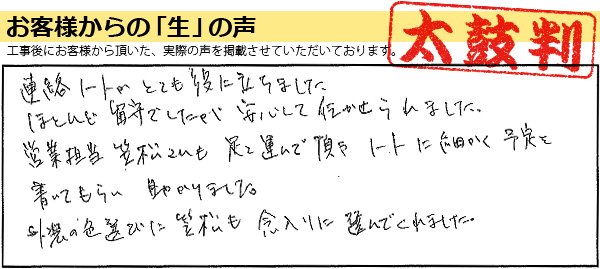 お客様からの「生」の声
工事後にお客様から頂いた、実際の声を掲載させていただいております。
太鼓判
連絡ノートが とても役に立ちました。
ほとんど留守でしたが 安心して任せられました。
営業担当 笠松さんも 足を運んで頂き ノートに細かく 予定を
書いてもらい 助かりました。
外装の色選びに 笠松も 念入りに 選んでくれました。